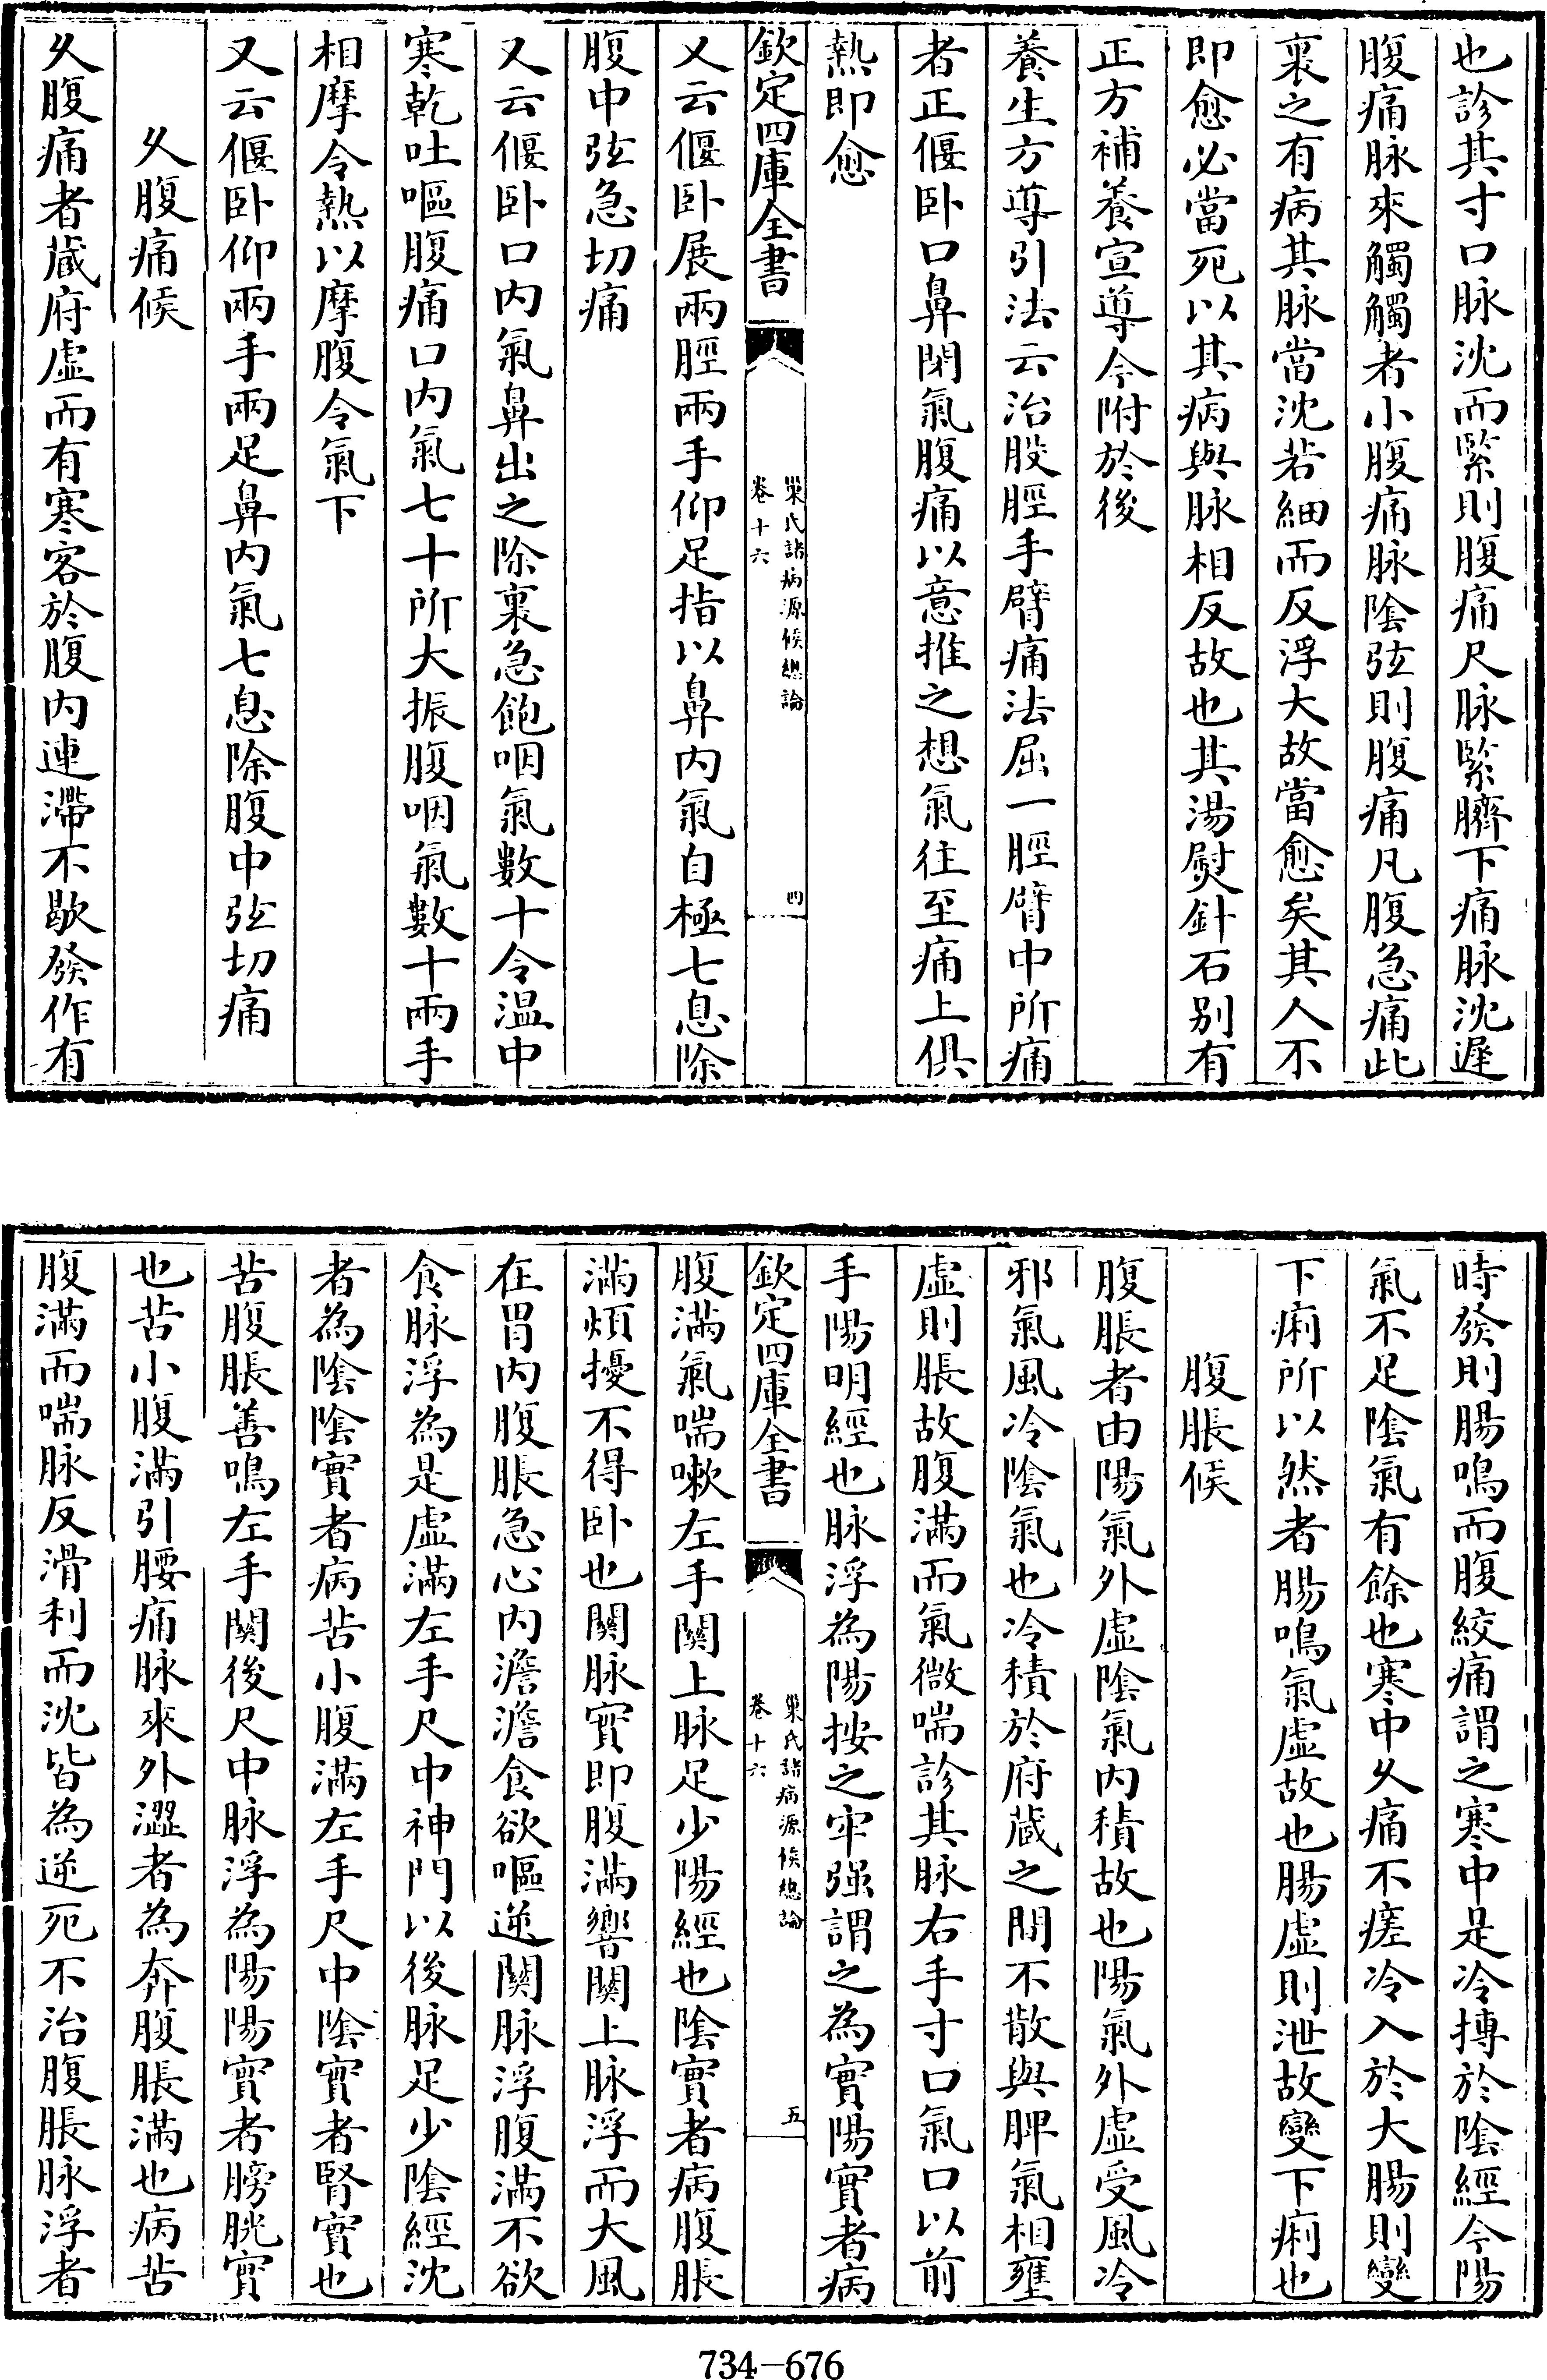 也診其寸口脉沈而緊則腹痛尺脉緊臍下痛脉沈遲
腹痛脉來觸觸者小腹痛脉隂弦則腹痛凡腹急痛此
裏之有病其脉當沈若細而反浮大故當愈矣其人不
即愈必當死以其病與脉相反故也其湯熨針石别有
正方補養宣導今附於後
養生方導引法云治股脛手臂痛法屈一脛臂中所痛
者正偃卧口鼻閉氣腹痛以意推之想氣往至痛上俱
熱即愈
欽定四庫全書
巢氏諸病源候總論
卷十六
四
又云偃卧展兩脛兩手仰足指以鼻内氣自極七息除
腹中弦急切痛
又云偃卧口内氣鼻出之除裏急飽咽氣數十令温中
寒乾吐嘔腹痛口内氣七十所大振腹咽氣數十兩手
相摩令熱以摩腹令氣下
又云偃卧仰兩手兩足鼻内氣七息除腹中弦切痛
乆腹痛候
乆腹痛者藏府虚而有寒客於腹内連滯不歇發作有
時發則腸鳴而腹絞痛謂之寒中是冷搏於隂經令陽
氣不足隂氣有餘也寒中乆痛不瘥冷入於大腸則變
下痢所以然者腸鳴氣虚故也腸虚則泄故變下痢也
腹脹候
腹脹者由陽氣外虚隂氣内積故也陽氣外虚受風冷
邪氣風冷隂氣也冷積於府藏之間不散與脾氣相壅
虚則脹故腹滿而氣微喘診其脉右手寸口氣口以前
手陽明經也脉浮為陽按之牢强謂之為實陽實者病
欽定四庫全書
巢氏諸病源候總論
卷十六
五
腹滿氣喘嗽左手關上脉足少陽經也隂實者病腹脹
滿煩擾不得卧也關脉實即腹滿響關上脉浮而大風
在胃内腹脹急心内澹澹食欲嘔逆關脉浮腹滿不欲
食脉浮為是虚滿左手尺中神門以後脉足少隂經沈
者為隂隂實者病苦小腹滿左手尺中隂實者腎實也
苦腹脹善鳴左手關後尺中脉浮為陽陽實者膀胱實
也苦小腹滿引腰痛脉來外澀者為奔腹脹滿也病苦
腹滿而喘脉反滑利而沈皆為逆死不治腹脹脉浮者
734-676